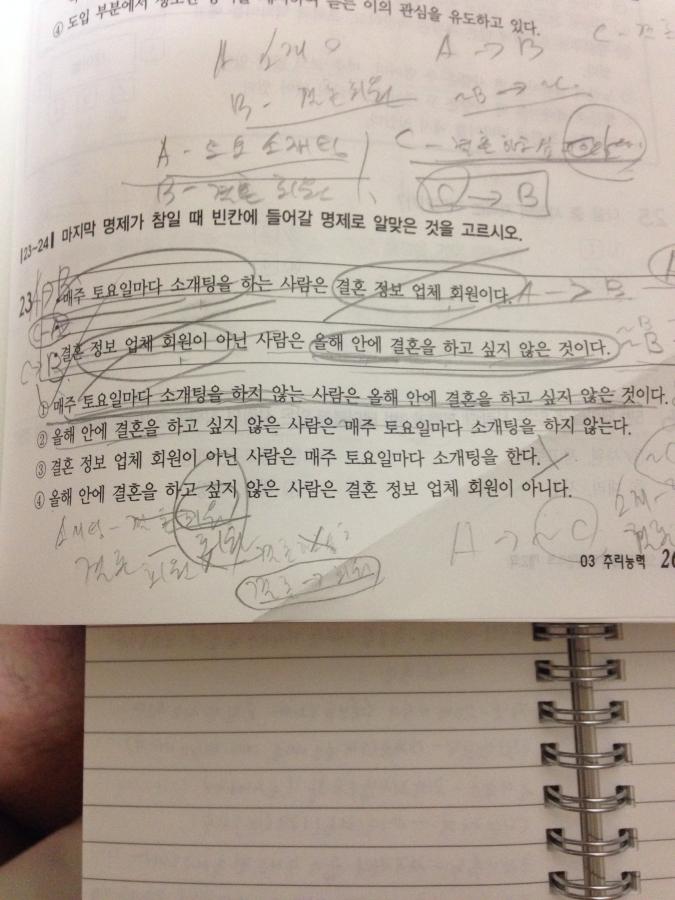 ④ 도입 부분에서 듣는 이의 관심을 유도하고 있다.
A 소개 A → B C - 결혼
B - 결혼 회원 ~B → ~C
A - 토요 소개팅 C - 결혼
B - 결혼 회원 C → B
|23~24| 마지막 명제가 참일 때 빈칸에 들어갈 명제로 알맞은 것을 고르시오.
23 A → B
· 매주 토요일마다 소개팅을 하는 사람은 결혼 정보 업체 회원이다. A → B
· 결혼 정보 업체 회원이 아닌 사람은 올해 안에 결혼을 하고 싶지 않은 것이다. ~B
① 매주 토요일마다 소개팅을 하지 않는 사람은 올해 안에 결혼을 하고 싶지 않은 것이다.
② 올해 안에 결혼을 하고 싶지 않은 사람은 매주 토요일마다 소개팅을 하지 않는다.
③ 결혼 정보 업체 회원이 아닌 사람은 매주 토요일마다 소개팅을 한다.
④ 올해 안에 결혼을 하고 싶지 않은 사람은 결혼 정보 업체 회원이 아니다.
소개팅 - 결혼 회원 A → ~C
결혼 회원
결혼 → 회원
03 추리능력